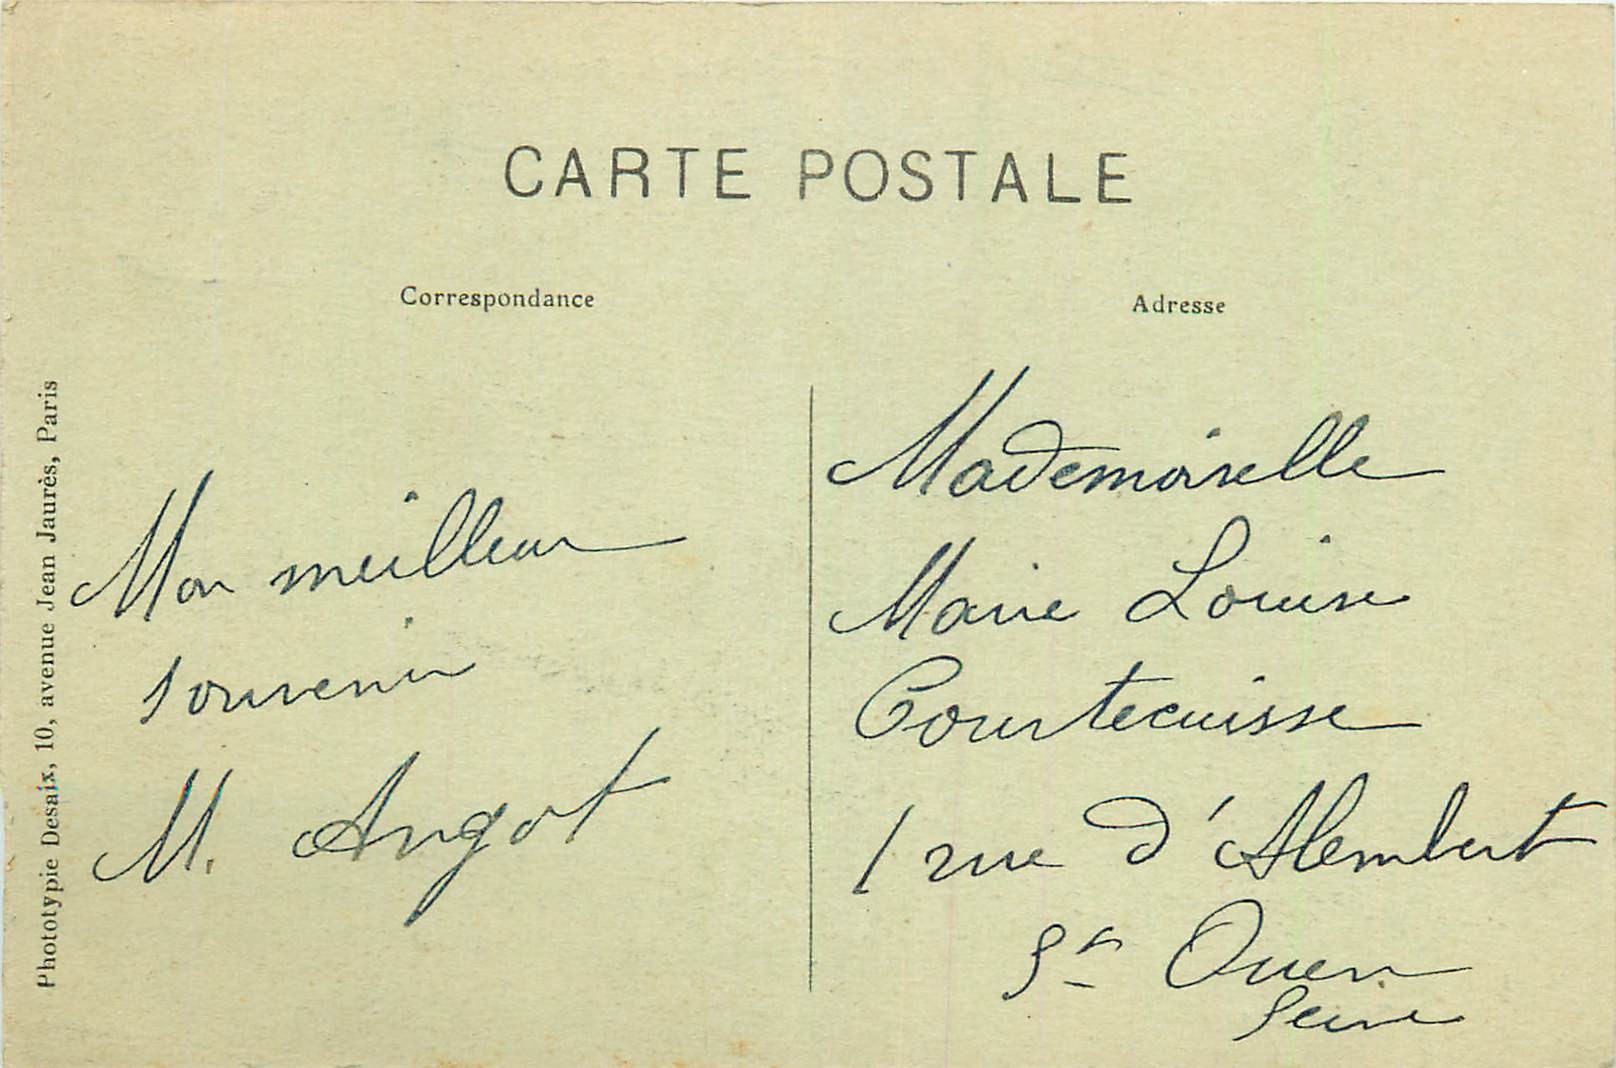 CARTE POSTALE
Correspondance
Adresse
Phototypie Desaix, 10, avenue Jean Jaurès, Paris
Mon meilleur
souvenir
M. Angot
Mademoiselle
Marie Louise
Courtecuisse
1 rue d'Alembert
St Ouen
Seine